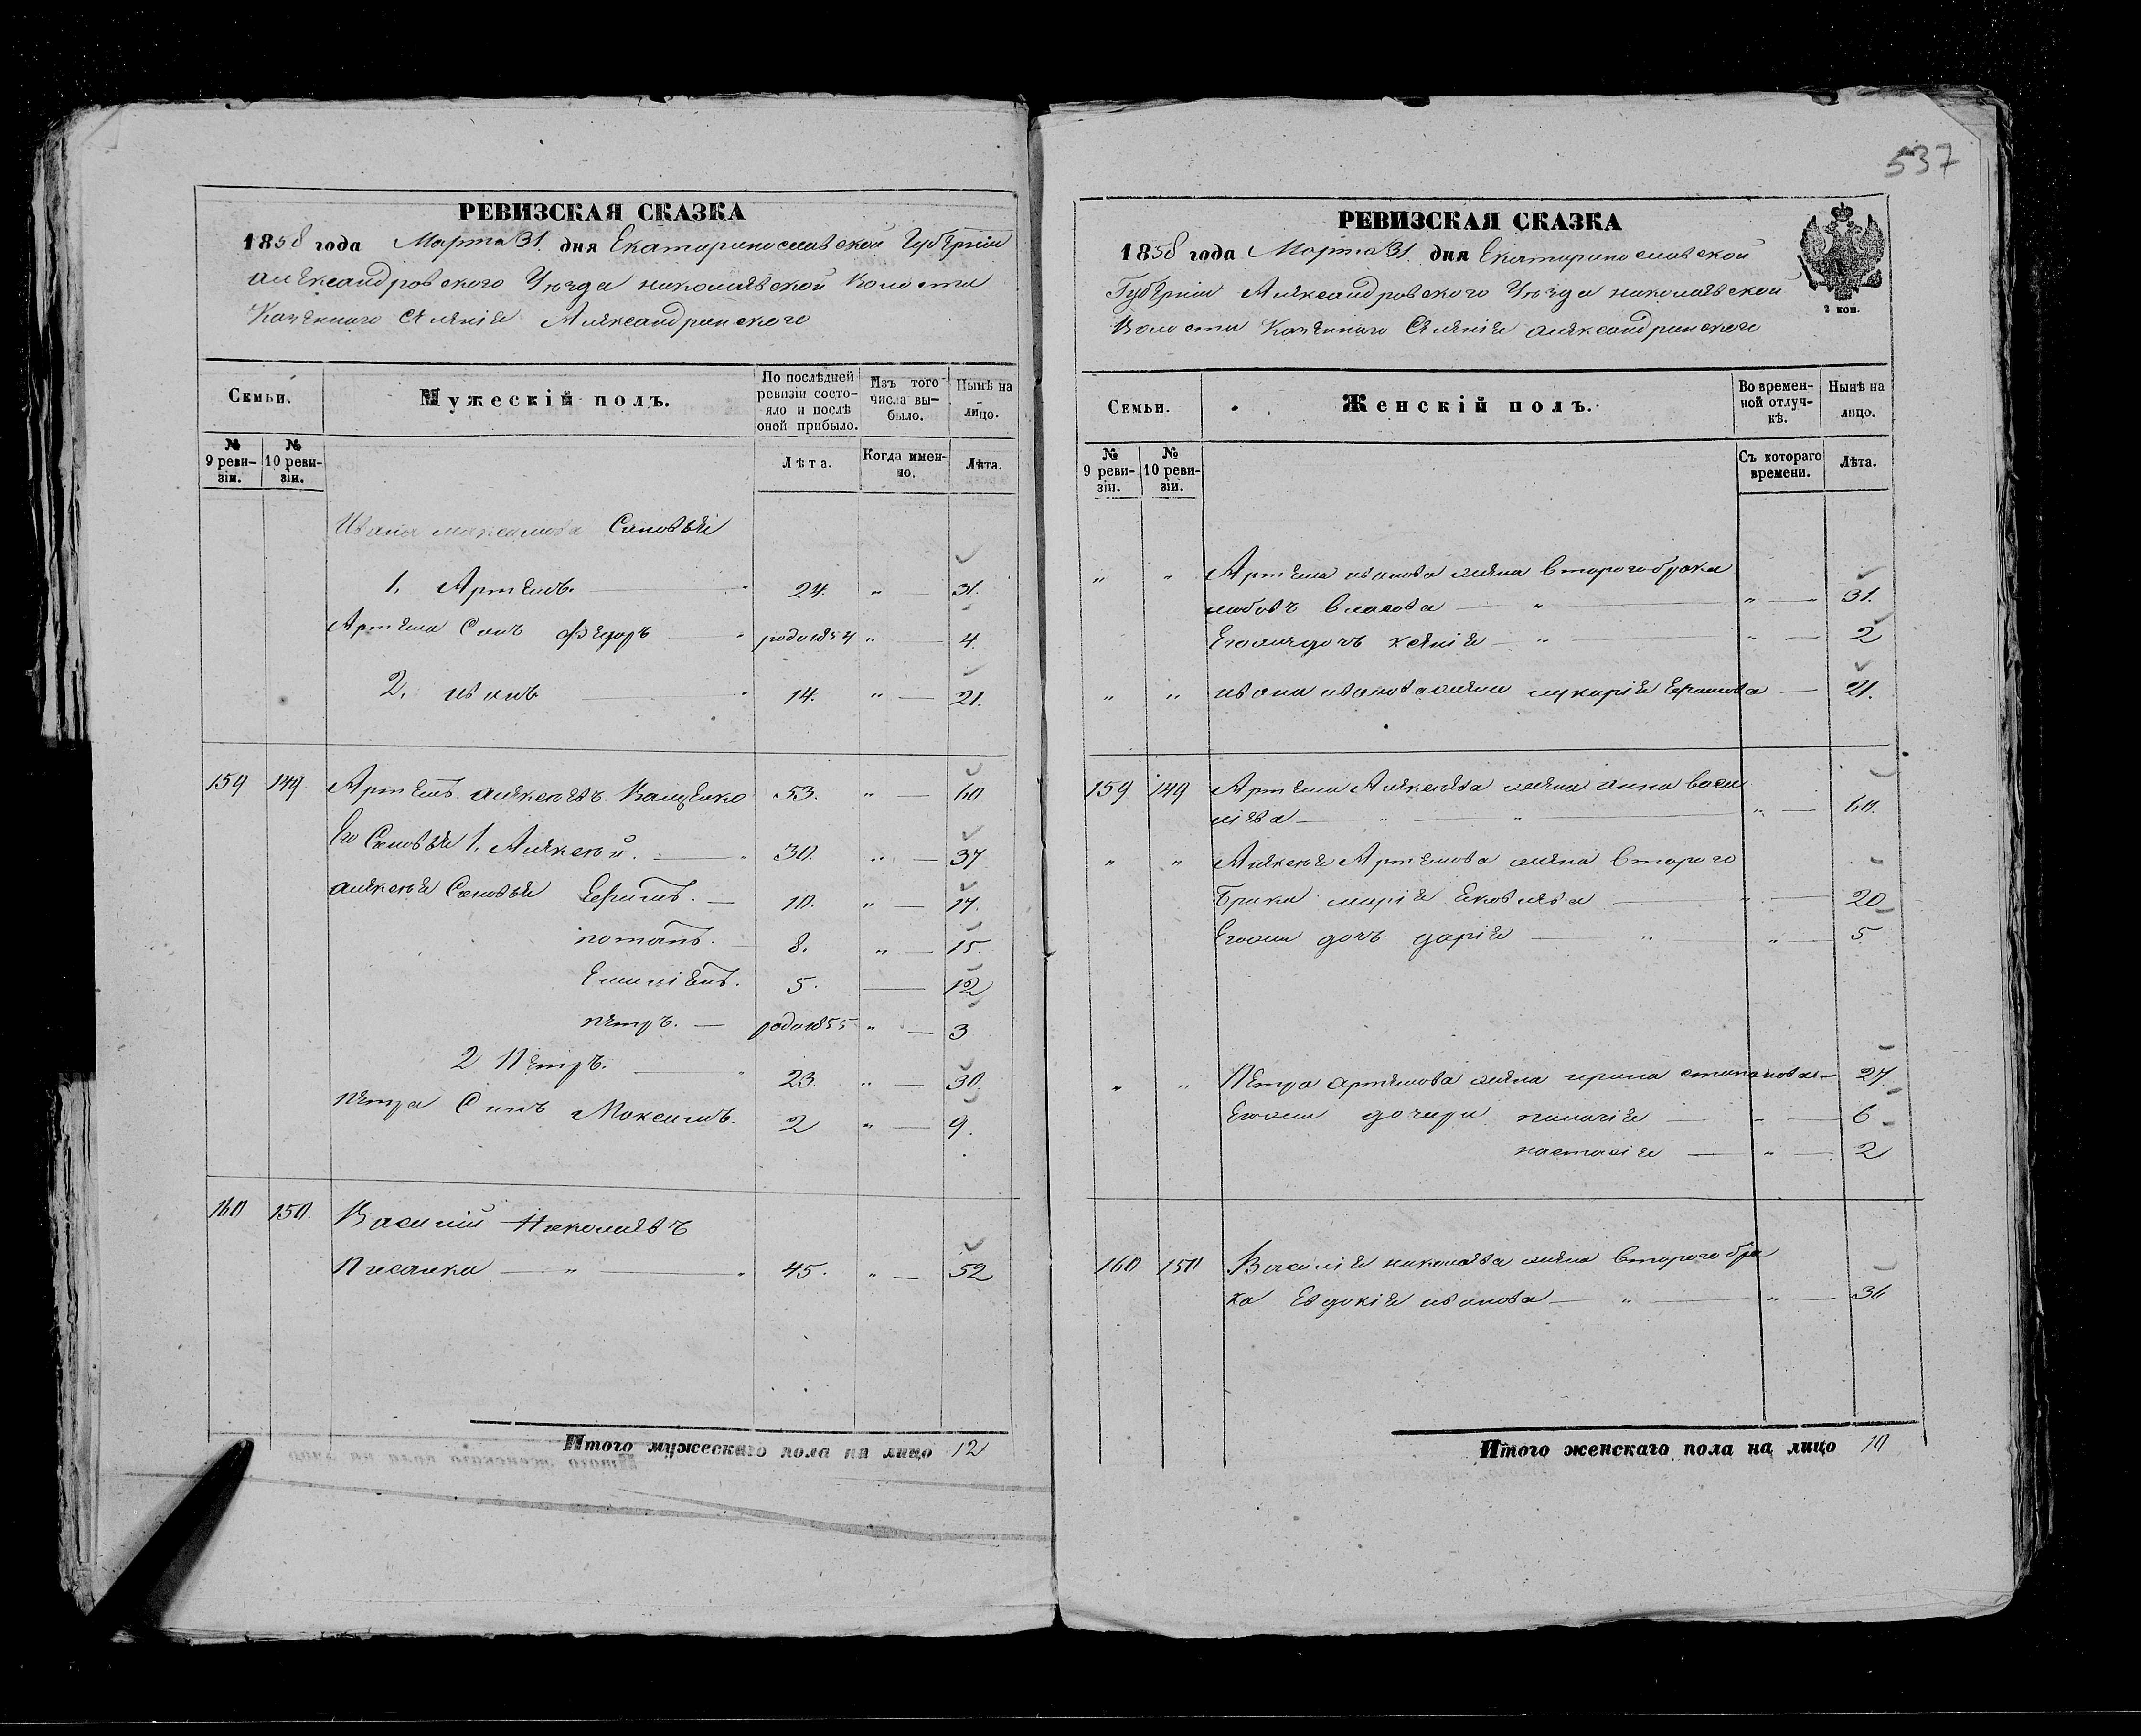 537
РЕВИЗСКАЯ СКАЗКА
1858 года Марта 31. дня Екатеринославской Губерніи
александровского Уезда николаевской Волости
Казенного Селения Александринского
Семьи.
Мужескій полъ.
По послѣдней ревизіи состояло и послѣ оной прибыло.
Изъ того числа выбыло.
Нынѣ на лицо.
№ 9 ревизіи.
№ 10 ревизіи.
Лѣта.
Когда именно.
Лѣта.
Ивана Сыновья
1. Артемъ. 24. " 31.
Артема Сынъ Федоръ родо 1854 " 4.
2. иванъ 14. " 21.
159 149 Артемъ алексеевъ Кащенко 53. " 60
Его Сыновья 1. Алексей. 30. " 37
алексея Сыновья Ефимъ. 10. " 17.
потапъ. 8. " 15.
Емилиянъ. 5. 12
петръ. родо 1855 " 3
2 Петръ. 23. " 30.
петра Сынъ Максимъ. 2 " 9.
160 150. Василий Николаевъ
Писанка " 45. " 52
Итого мужескаго пола на лицо 12
РЕВИЗСКАЯ СКАЗКА
1858 года Марта 31. дня Екатеринославской
Губерніи Александровского Уезда николаевской
Волости Казенного Селения александринского
2 коп.
Семьи.
Женскій полъ.
Во временной отлучкѣ.
Нынѣ на лицо.
№ 9 ревизіи.
№ 10 ревизіи.
Съ котораго времени.
Лѣта.
" " Артема иванова жена второго брака
любовъ власова " " 31.
Егожа дочъ ксения " " 2
" " ивана иванова жена лукерия Ефимова 21.
159 149 Артема Алексеева жена анна васи
лиева " " " 60.
" " Алексея Артемова жена второго
брака мария Яковлева " 20
Егожа дочъ дария " " 5
" " Петра артемова жена ирина степанова 27.
Егожа дочери пелагия " 6
настасия " 2
160 150 Василия николаева жена второго бра
ка Евдокия иванова " " 36
Итого женскаго пола на лицо 10